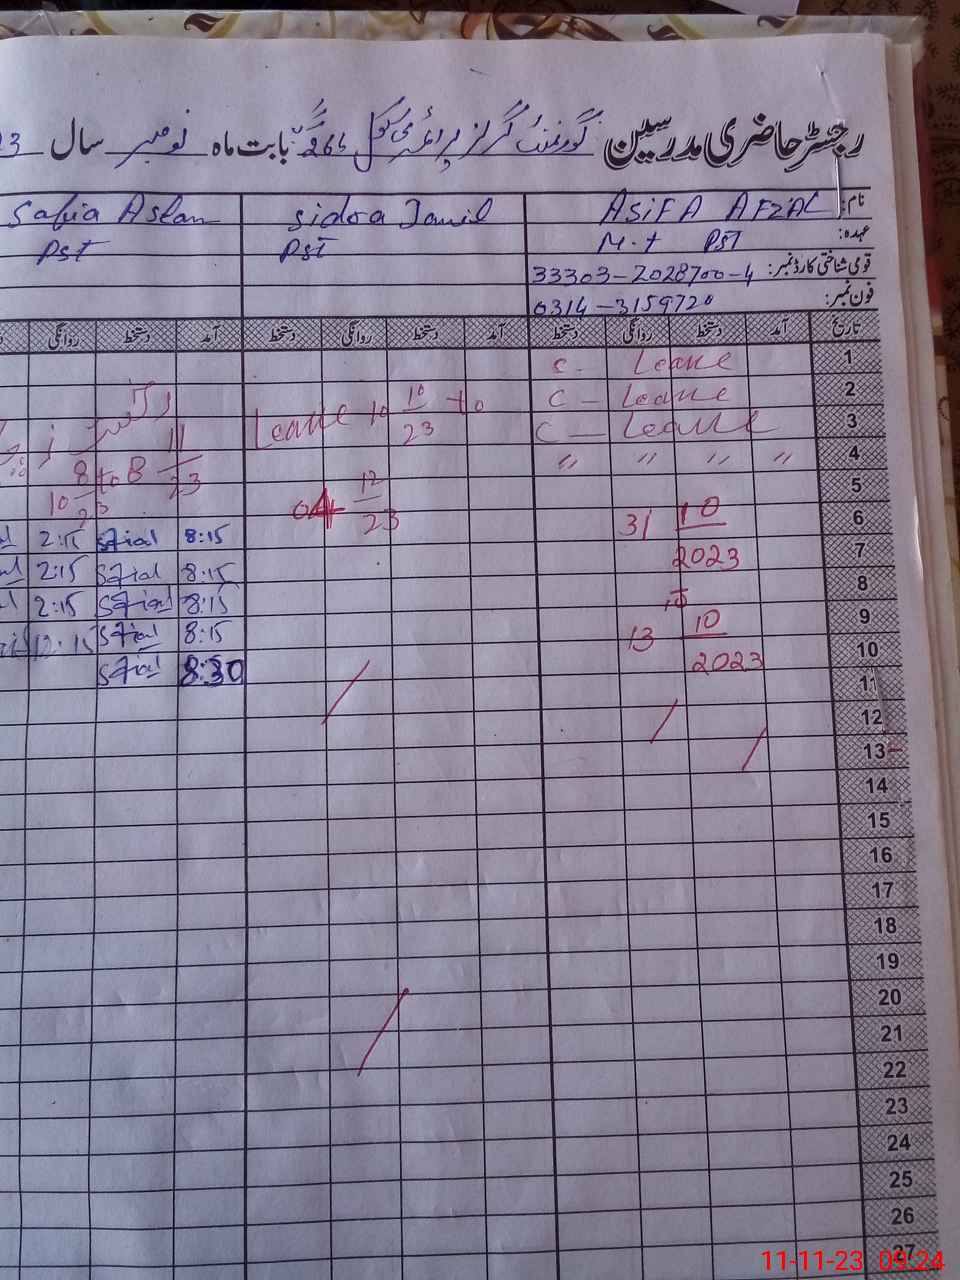 رجسٹر حاضری مدرسین گورنمنٹ گرلز پرائمری سکول 266 گ ب بابت ماہ نومبر سال 23
نام: ASIFA AFZAL Sidra Jamil Safia Aslam
عہدہ: M.t PST PST PST
قومی شناختی کارڈ نمبر: 33303-2028700-4
فون نمبر: 0314-3159720
تاریخ آمد دستخط روانگی دستخط آمد دستخط روانگی دستخط آمد دستخط روانگی
1 C- Leave
2 C- Leave Leave 10 10/23 to
3 C- Leave
4 " " " "
5 04 12/23 10 8/23 to 8 11/23
6 31 10/2023 8:15 2:15
7 8:15 2:15
8 8:15 2:15
9 13 10/2023 8:15 12:15
10 8:30
11
12
13
14
15
16
17
18
19
20
21
22
23
24
25
26
27
11-11-23 09:24